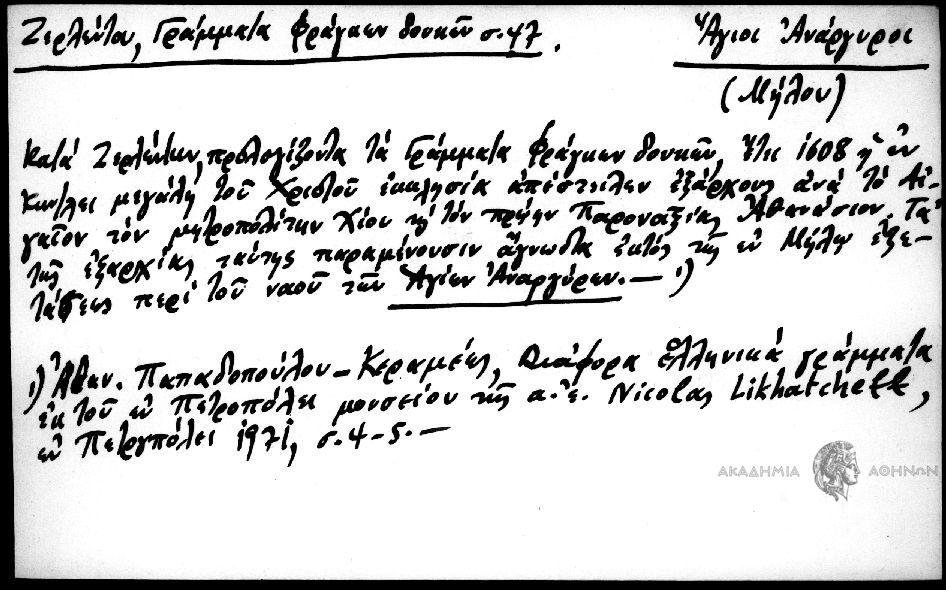 Ζερλέντου, Γράμματα Φράγκων δουκῶν σ. 47.
Ἅγιοι Ἀνάργυροι
(Μήλου)
Κατά Ζερλέντην, προλογίζοντα τά Γράμματα Φράγκων δουκῶν, Ἔτει 1608 ἡ ἐν
Κων/λει μεγάλη τοῦ Χριστοῦ ἐκκλησία ἀπέστειλεν ἐξάρχους ἀνά τό Αἰ-
γαῖον τόν μητροπολίτην Χίου καί τόν πρώην Παροναξίας Ἀθανάσιον. Τά
τῆς ἐξαρχίας ταύτης παραμένουσιν ἄγνωστα ἐκτός τῆς ἐν Μήλῳ ἐξε-
τάσεως περί τοῦ ναοῦ τῶν Ἁγίων Ἀναργύρων.— ¹)
¹) Ἀθαν. Παπαδοπούλου-Κεραμέως, Διάφορα ἑλληνικά γράμματα
ἐκ τοῦ ἐν Πετροπόλει μουσείου τῆς α.ἐ. Nicolas Likhatcheff,
ἐν Πετρουπόλει 1971, σ. 4-5.—
ΑΚΑΔΗΜΙΑ ΑΘΗΝΩΝ